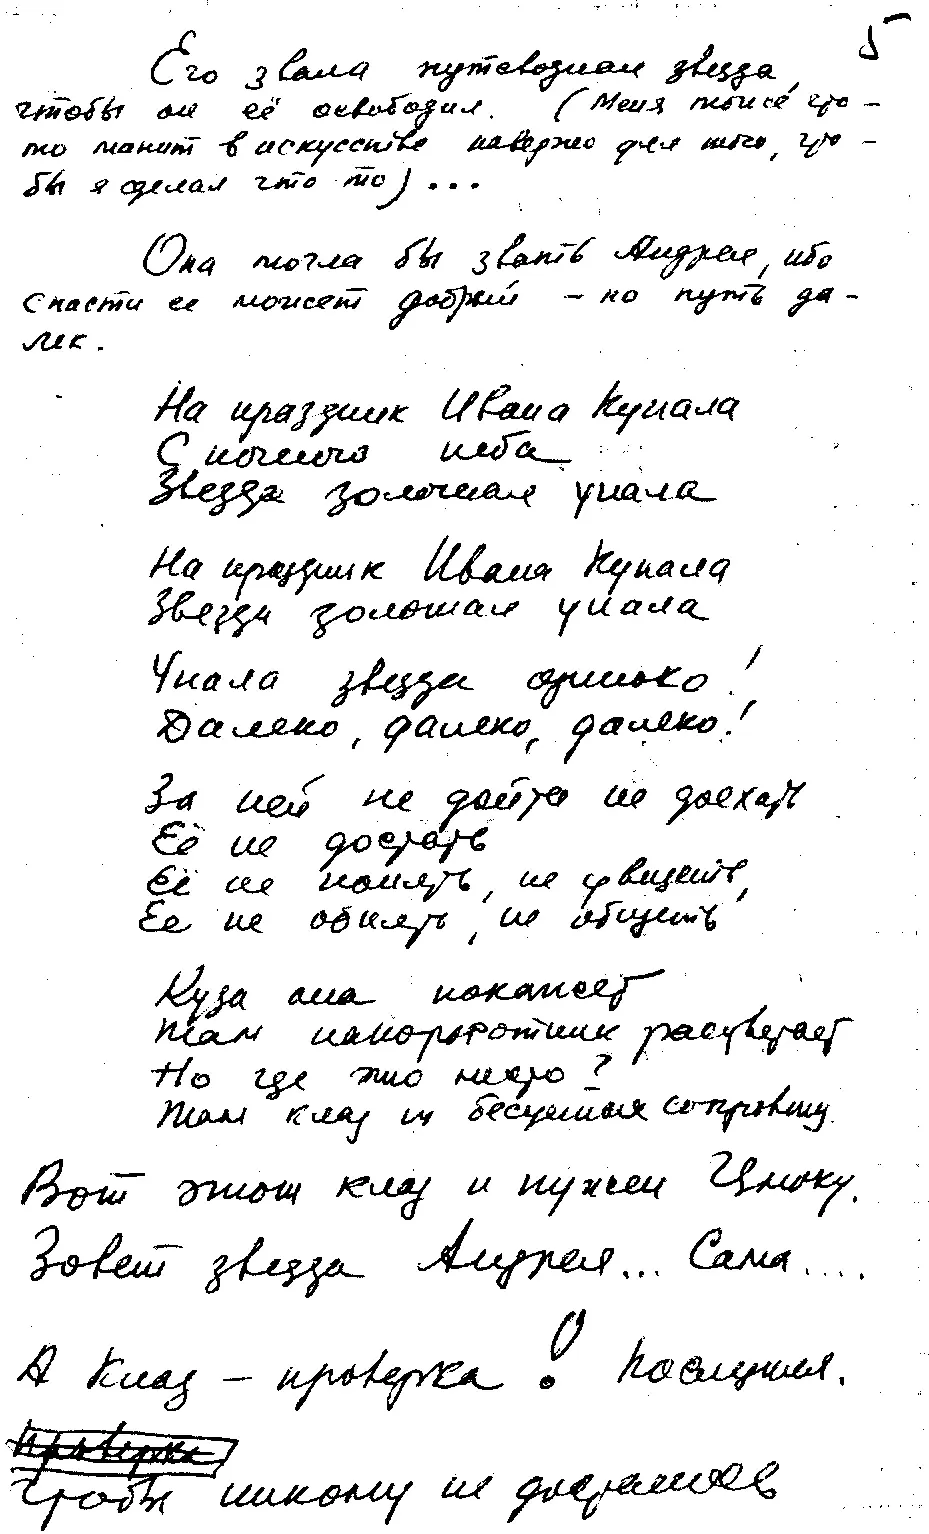 5
Его звала путеводная звезда,
чтобы он её освободил. (Меня тоже что-
то манит в искусстве наверно для того, что-
бы я сделал что то) ...
Она могла бы звать Андрея, ибо
спасти ее может добрый – но путь да-
лек.
На праздник Ивана Купала
С ночного неба
Звезда золотая упала
На праздник Ивана Купала
Звезда золотая упала
Упала звезда одиноко!
Далеко, далеко, далеко!
За ней не дойти не доехать
Её не достать
Её не понять, не увидеть,
Ее не обнять, не обидеть
Куда она покажет
Там папоротник расцветает
Но где это место?
Там клад из бесценных сокровищ
Вот этот клад и нужен Цмоку.
Зовет звезда Андрея... Сама....
А Клад – проверка! Последняя.
Проверка
Чтобы никому не достался